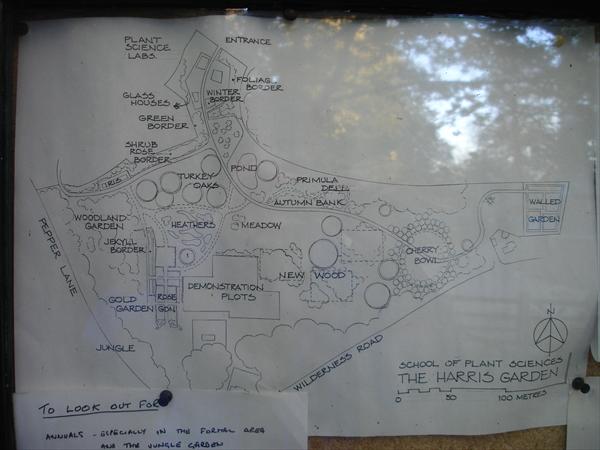 PLANT
SCIENCE
LABS.
ENTRANCE
FOLIAG
BORDER
GLASS
HOUSES
WINTER
BORDER
GREEN
BORDER
SHRUB
ROSE
BORDER
IRIS
POND
TURKEY
OAKS
PRIMULA
DELL
AUTUMN BANK
WALLED
GARDEN
WOODLAND
GARDEN
HEATHERS
MEADOW
PEPPER LANE
JEKYLL
BORDER
CHERRY
BOWL
NEW WOOD
DEMONSTRATION
PLOTS
GOLD
GARDEN
ROSE
GDN
JUNGLE
WILDERNESS ROAD
N
SCHOOL OF PLANT SCIENCES
THE HARRIS GARDEN
0 50 100 METRES
TO LOOK OUT FOR
ANNUALS - ESPECIALLY IN THE FORMAL AREA
AND THE JUNGLE GARDEN